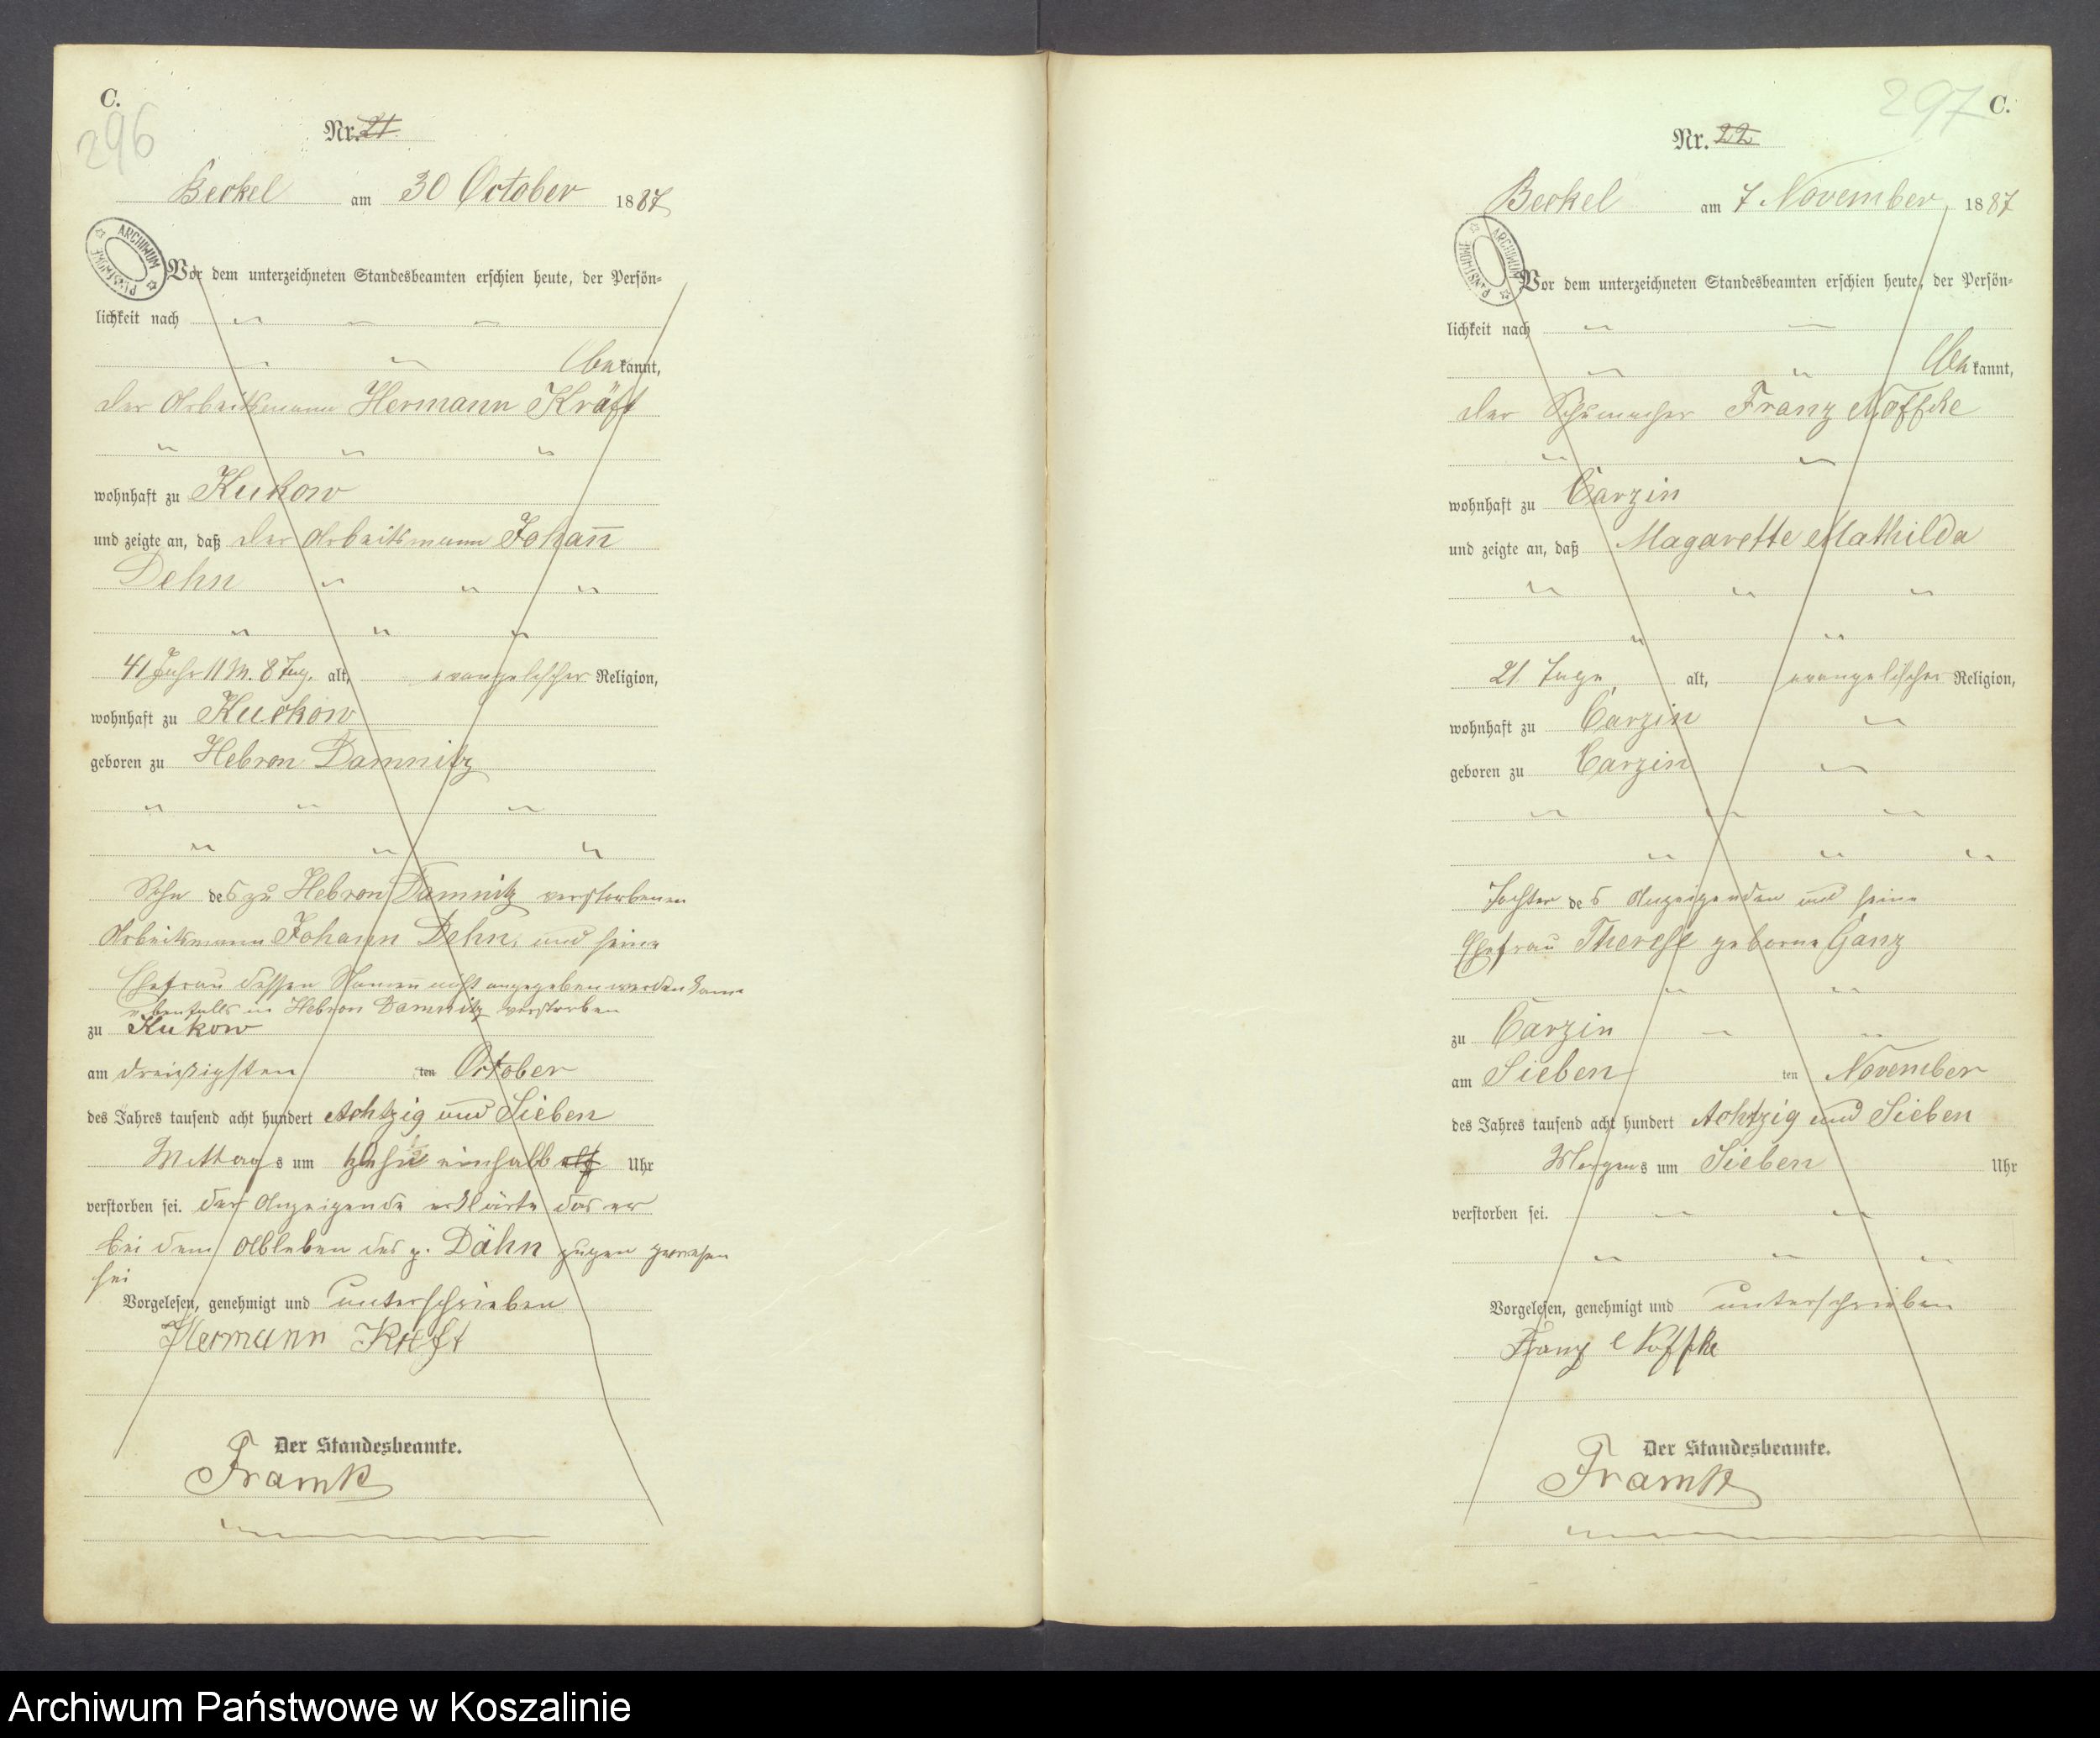 C.
296
Nr. 21
Beckel am 30 October 1887
ARCHIWUM PAŃSTWOWE
Vor dem unterzeichneten Standesbeamten erschien heute, der Persön-
lichkeit nach
bekannt,
der Arbeitsmann Hermann Kräft
wohnhaft zu Kukow
und zeigte an, daß der Arbeitsmann Johann̄
Dehn
41 Jahr 11 M. 8 Tag. alt, evangelischer Religion,
wohnhaft zu Kuckow
geboren zu Hebron Damnitz
Sohn des zu Hebron Damnitz verstorbenen
Arbeitsmann Johann Dehn und seine
Ehefrau dessen Namen nicht angegeben werden kann
ebenfalls in Hebron Damnitz verstorben
zu Kukow
am dreißigsten ten October
des Jahres tausend acht hundert Achtzig und Sieben
Mittags um einhalb elf Uhr
verstorben sei. der Anzeigende erklärte das er
bei dem Ableben des p. Dähn zugen gewesen
sei
Vorgelesen, genehmigt und unterschrieben
Hermann Kräft
Der Standesbeamte.
Framk
297 C.
Nr. 22
Beckel am 7 November 1887
ARCHIWUM PAŃSTWOWE
Vor dem unterzeichneten Standesbeamten erschien heute, der Persön-
lichkeit nach
bekannt,
der Schumacher Franz Noffcke
wohnhaft zu Carzin
und zeigte an, daß Magarette Mathilda
21 Tage alt, evangelischer Religion,
wohnhaft zu Carzin
geboren zu Carzin
Tochter des Anzeigenden und seine
Ehefrau Therese geborne Ganz
zu Carzin
am Sieben ten November
des Jahres tausend acht hundert Achtzig und Sieben
Morgens um Sieben Uhr
verstorben sei.
Vorgelesen, genehmigt und unterschrieben
Franz Noffke
Der Standesbeamte.
Framk
Archiwum Państwowe w Koszalinie